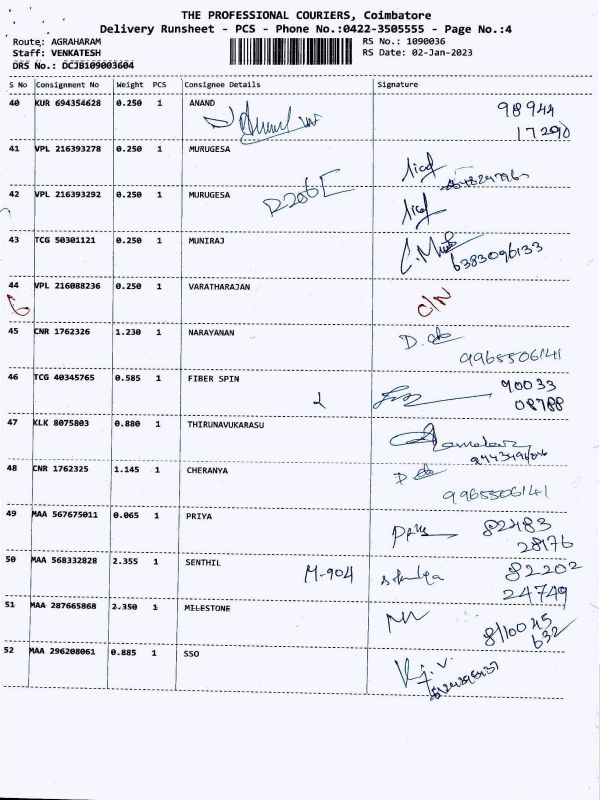 THE PROFESSIONAL COURIERS, Coimbatore
Delivery Runsheet - PCS - Phone No.:0422-3505555 - Page No.:4
Route: AGRAHARAM
Staff: VENKATESH
DRS No.: DCJB109003604
RS No.: 1090036
RS Date: 02-Jan-2023
S No Consignment No Weight PCS Consignee Details Signature
40 KUR 694354628 0.250 1 ANAND 98944
17290
41 VPL 216393278 0.250 1 MURUGESA
42 VPL 216393292 0.250 1 MURUGESA
43 TCG 50301121 0.250 1 MUNIRAJ
6383096133
44 VPL 216088236 0.250 1 VARATHARAJAN C/N
45 CNR 1762326 1.230 1 NARAYANAN
9965506141
46 TCG 40345765 0.585 1 FIBER SPIN 90033
08788
47 KLK 8075803 0.880 1 THIRUNAVUKARASU
48 CNR 1762325 1.145 1 CHERANYA
9965506141
49 MAA 567675011 0.065 1 PRIYA 82483
28976
50 MAA 568332828 2.355 1 SENTHIL M-904 82202
24749
51 MAA 287665868 2.350 1 MILESTONE
8110045
632
52 MAA 296208061 0.885 1 SSO